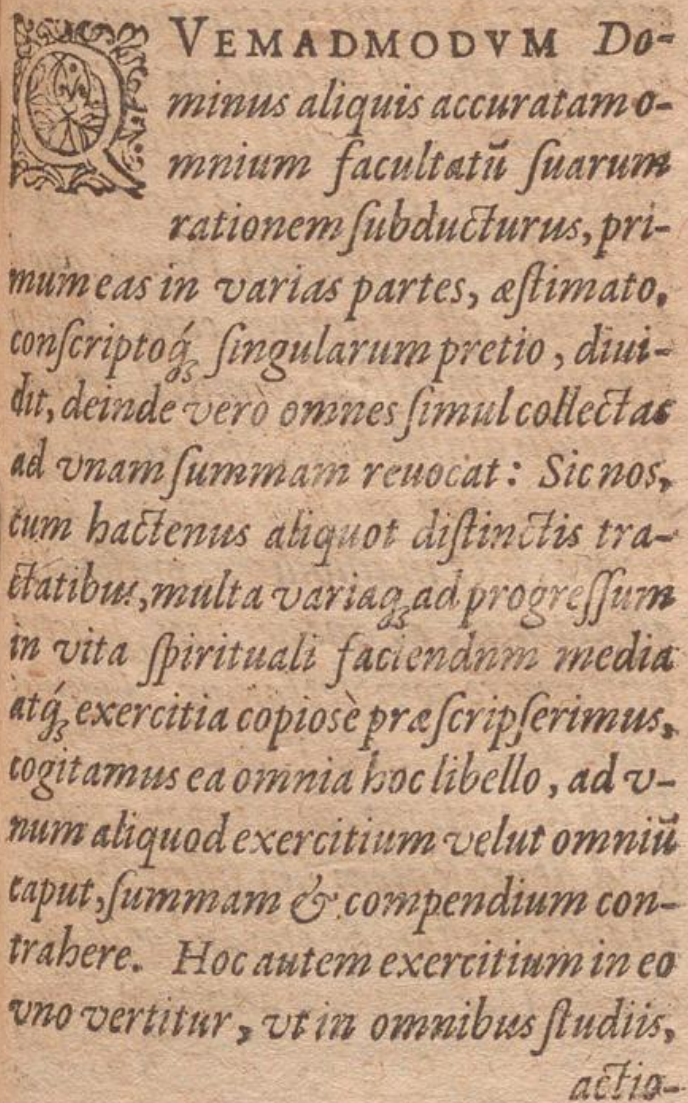 QVEMADMODVM Do-
minus aliquis accuratam o-
mnium facultatū ſuarum
rationem ſubducturus, pri-
mum eas in varias partes, æſtimato,
conſcriptoq́ꝫ ſingularum pretio, diui-
dit, deinde verò omnes ſimul collectas
ad vnam ſummam reuocat: Sic nos,
cum hactenus aliquot diſtinctis tra-
ctatibus, multa variaqꝫ ad progreſſum
in vita ſpirituali faciendnm media
atq́ꝫ exercitia copioſè præſcripſerimus,
cogitamus ea omnia hoc libello, ad v-
num aliquod exercitium velut omniū
caput, ſummam & compendium con-
trahere. Hoc autem exercitium in eo
vno vertitur, vt in omnibus ſtudiis,
actio-